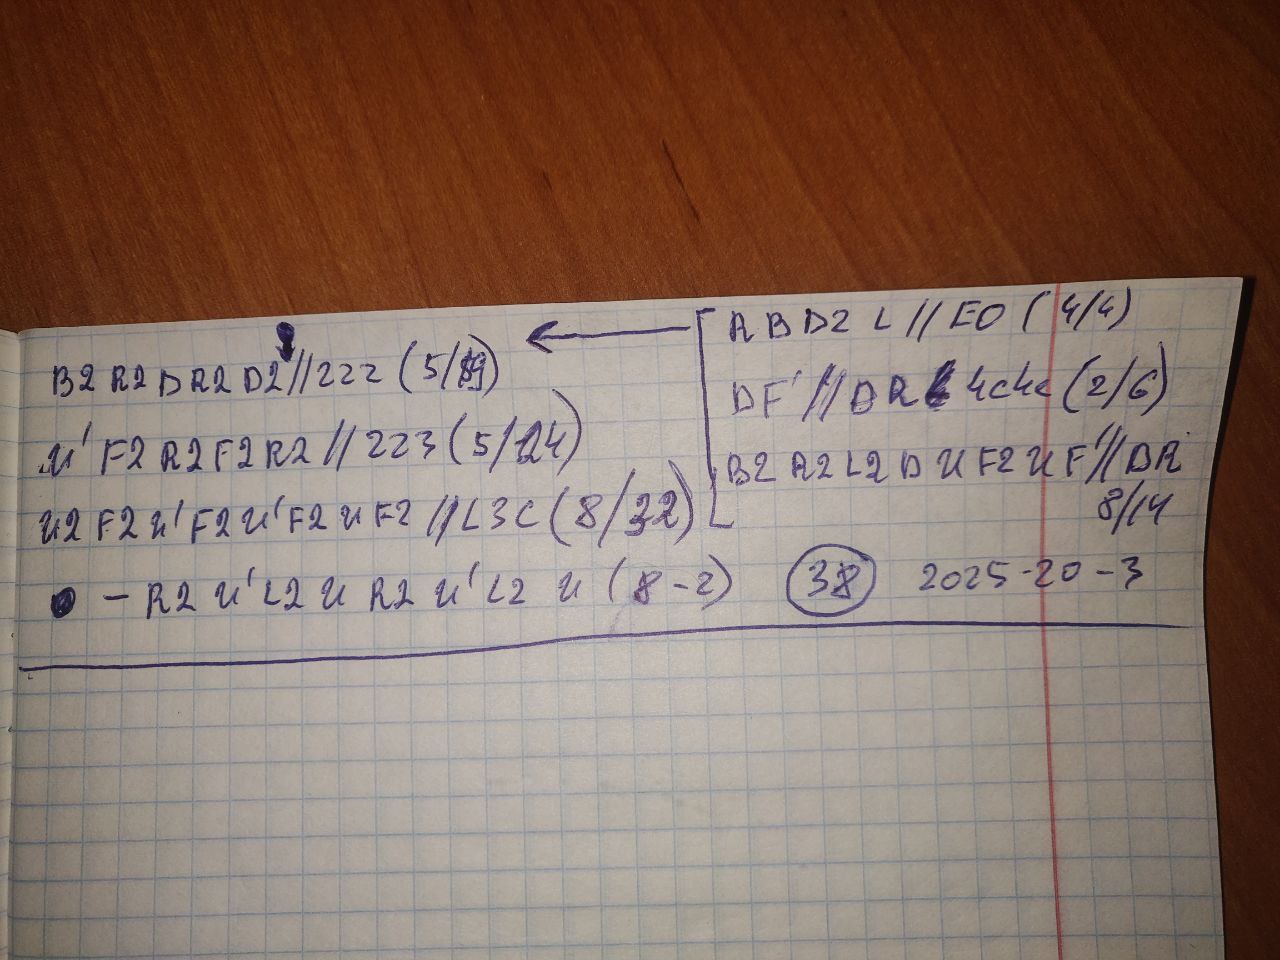 R B D2 L // EO (4/4)
DF' // DR 4c4e (2/6)
B2 R2 L2 D U F2 U F' // DR
8/14
B2 R2 D R2 D2 // 222 (5/19)
U' F2 R2 F2 R2 // 223 (5/24)
U2 F2 U' F2 U' F2 U F2 // L3C (8/32)
- R2 U' L2 U R2 U' L2 U (8-2) 38 2025-20-3